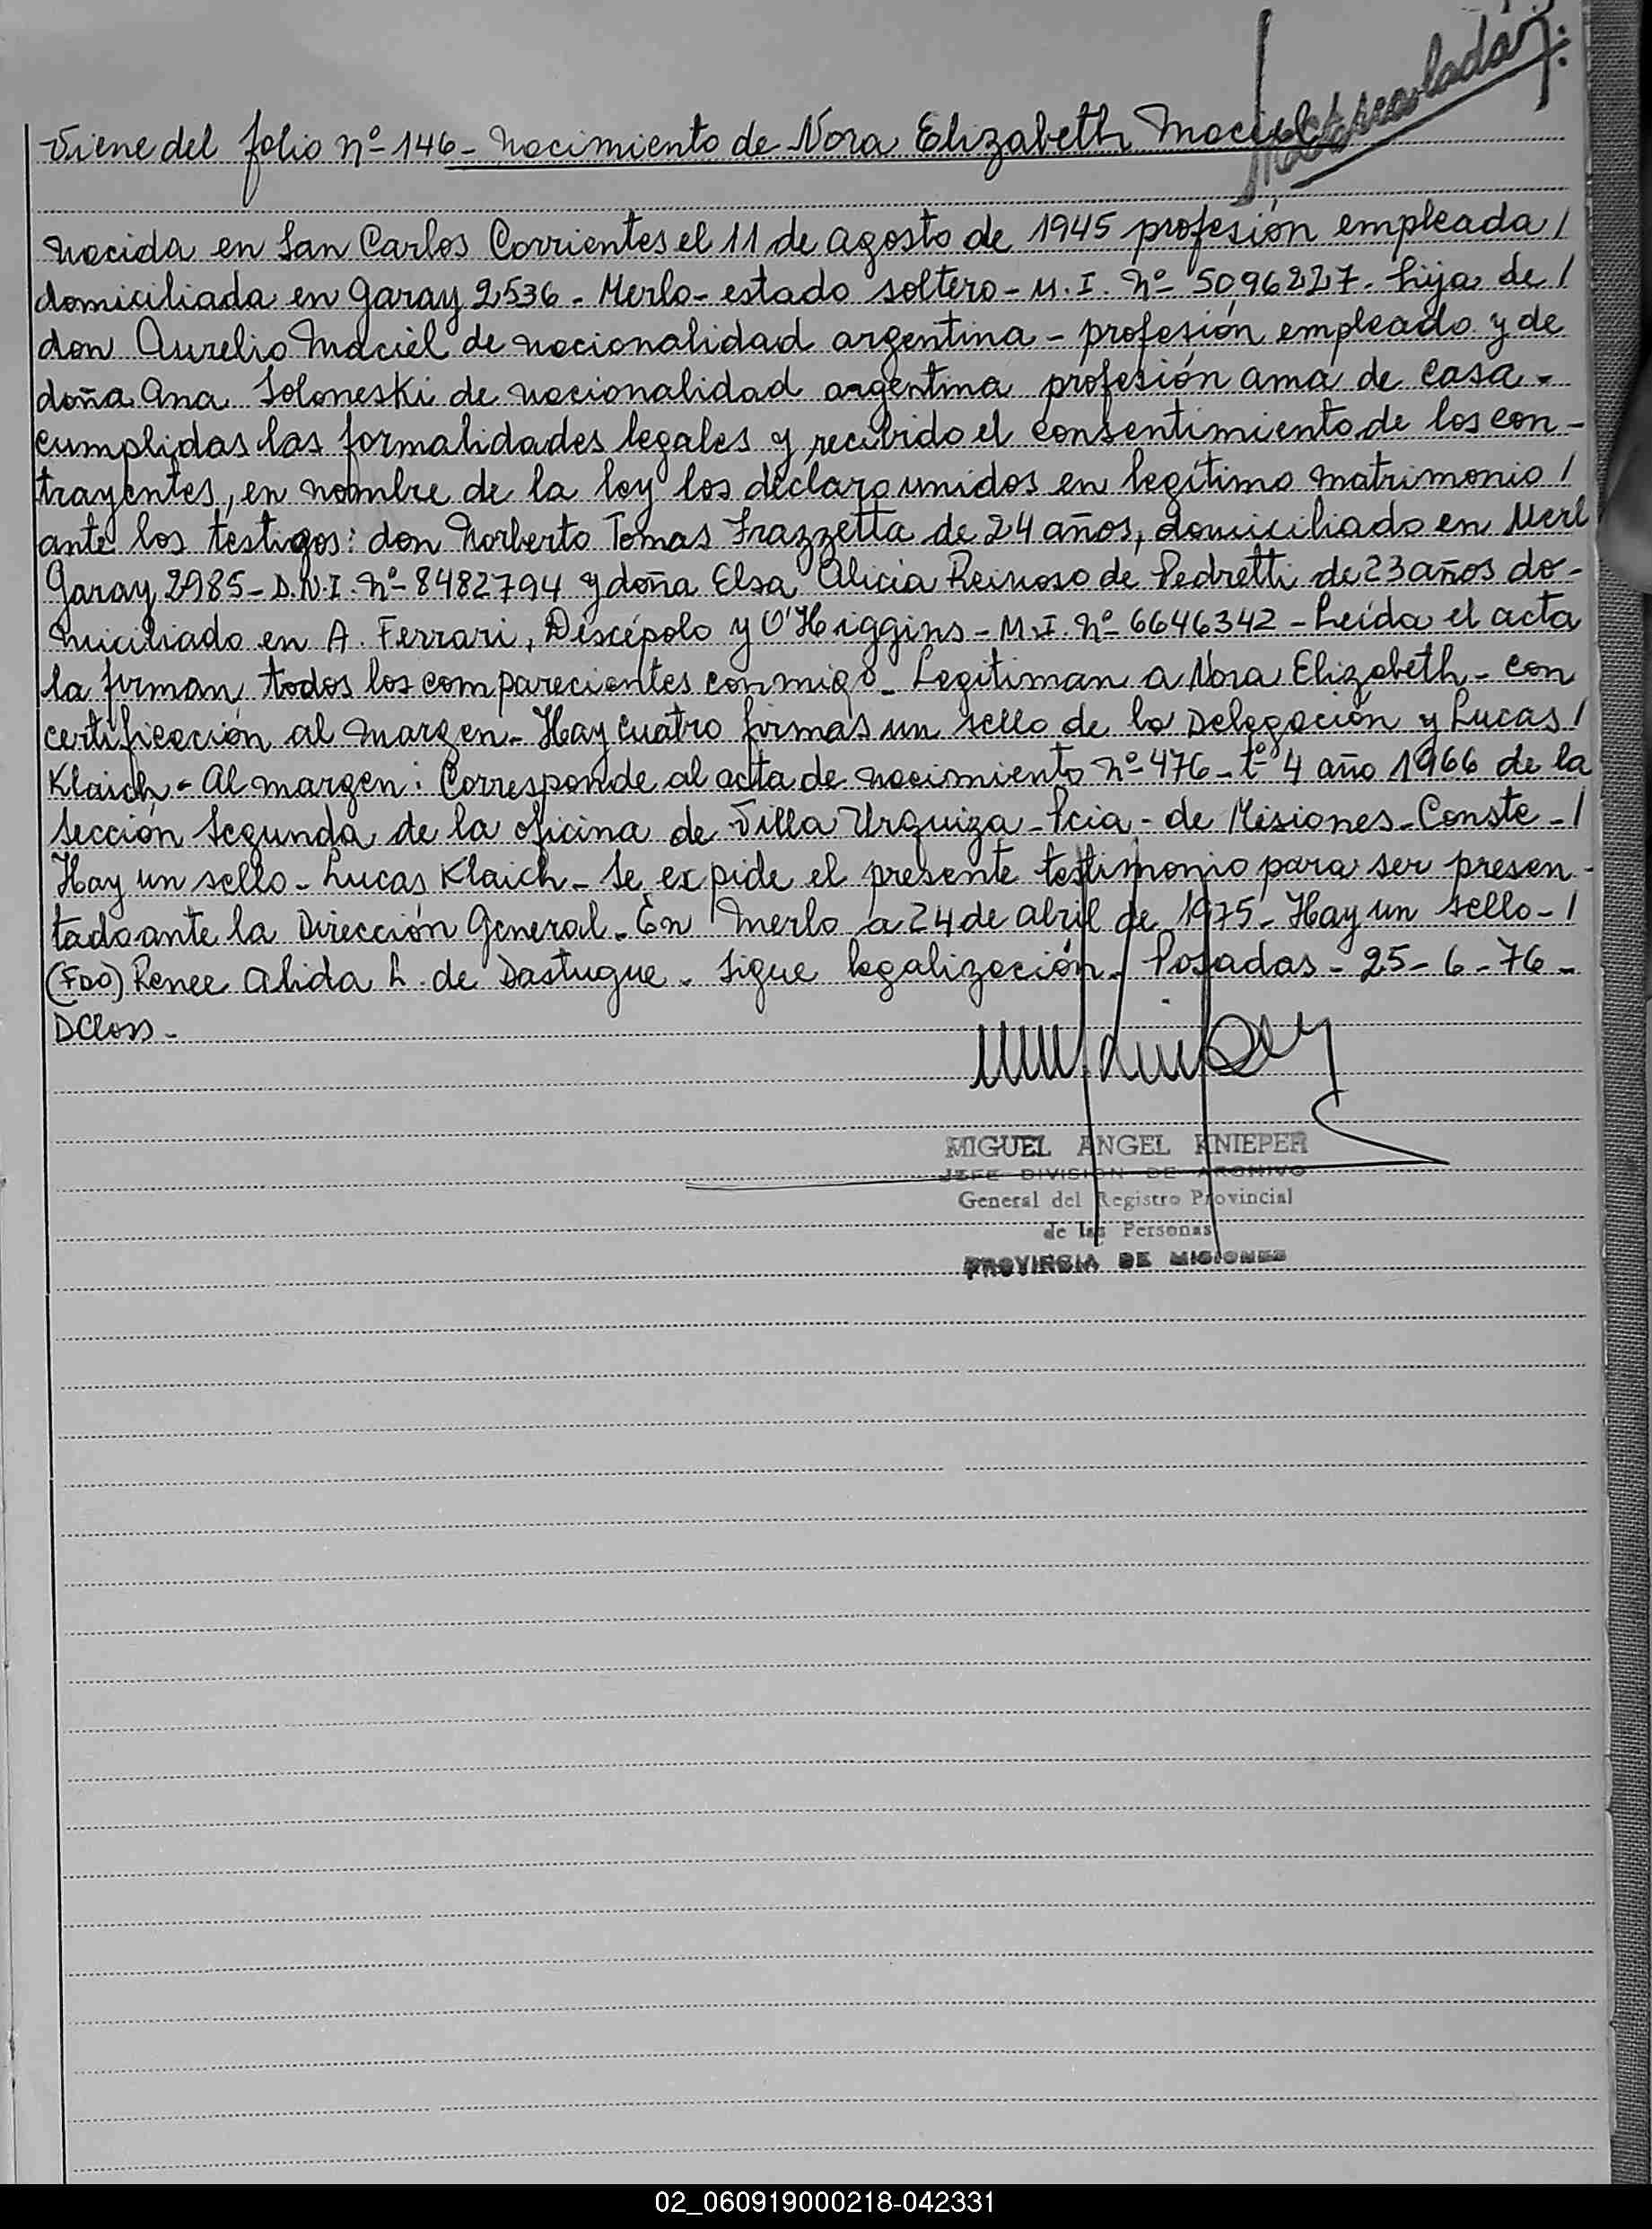 Viene del folio nº 146 - Nacimiento de Nora Elizabeth Maciel
nacida en San Carlos Corrientes el 11 de agosto de 1945 profesión empleada /
domiciliada en Garay 2536 - Merlo - estado soltero - M. I. nº 5096227 - hija de /
don Aurelio Maciel de nacionalidad argentina - profesión empleado y de
doña Ana Soloneski de nacionalidad argentina profesión ama de casa -
cumplidas las formalidades legales y recibido el consentimiento de los con-
trayentes, en nombre de la ley los declaro unidos en legítimo matrimonio /
ante los testigos: don Norberto Tomas Frazzetta de 24 años, domiciliado en Merl
Garay 2985 - D.N.I. nº 8482794 y doña Elsa Alicia Reinoso de Pedretti de 23 años do-
miciliado en A. Ferrari, Discépolo y O'Higgins - M.I. nº 6646342 - Leída el acta
la firman todos los comparecientes conmigo - Legitiman a Nora Elizabeth - con
certificación al margen - Hay cuatro firmas un sello de la Delegación y Lucas /
Klaich - Al margen: Corresponde al acta de nacimiento nº 476 - tº 4 año 1966 de la
Sección Segunda de la oficina de Villa Urquiza - Pcia - de Misiones - Conste - /
Hay un sello - Lucas Klaich - Se expide el presente testimonio para ser presen-
tado ante la Dirección General - En Merlo a 24 de abril de 1975 - Hay un sello - /
(FDO) Renee Alida L. de Dastugue - Sigue legalización - Posadas - 25-6-76 -
DCloss -
MIGUEL ANGEL KNIEPER
JEFE DIVISION DE ARCHIVO
General del Registro Provincial
de las Personas
PROVINCIA DE MISIONES
02_060919000218-042331